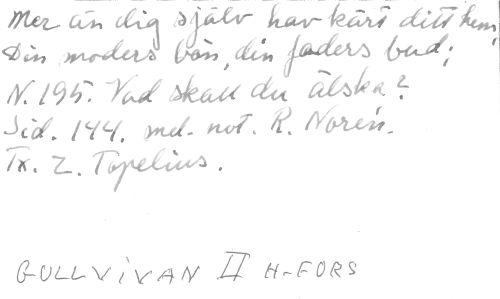 Mer än dig själv hav kärt ditt hem,
Din moders bön, din faders bud;
N. 195. Vad skall du älska?
Sid. 144. med. not. R. Norén.
Tx. Z. Topelius.
GULLVIVAN II H-FORS